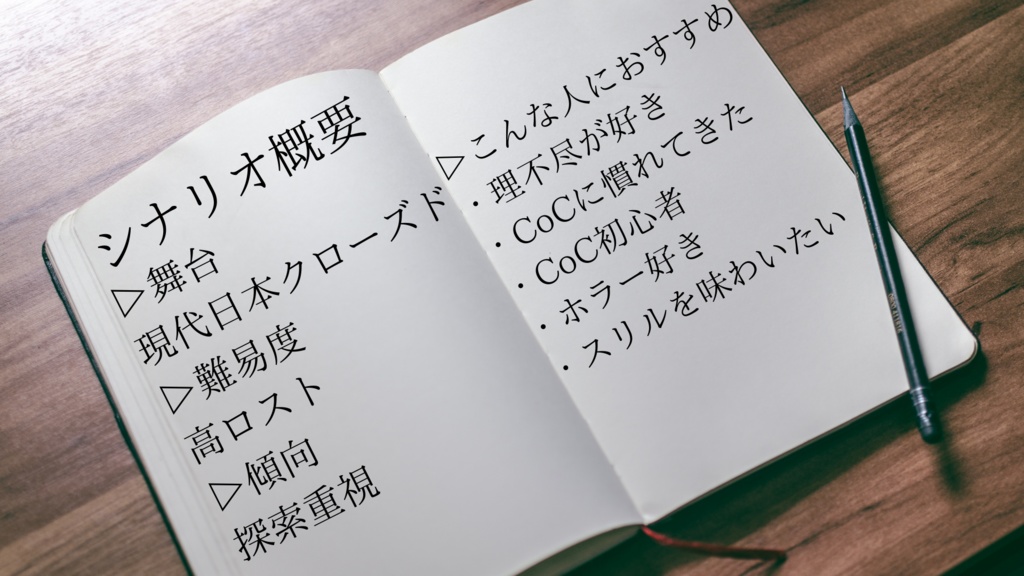 シナリオ概要
▷舞台
現代日本クローズド
▷難易度
高ロスト
▷傾向
探索重視
▷こんな人におすすめ
・理不尽が好き
・CoCに慣れてきた
・CoC初心者
・ホラー好き
・スリルを味わいたい